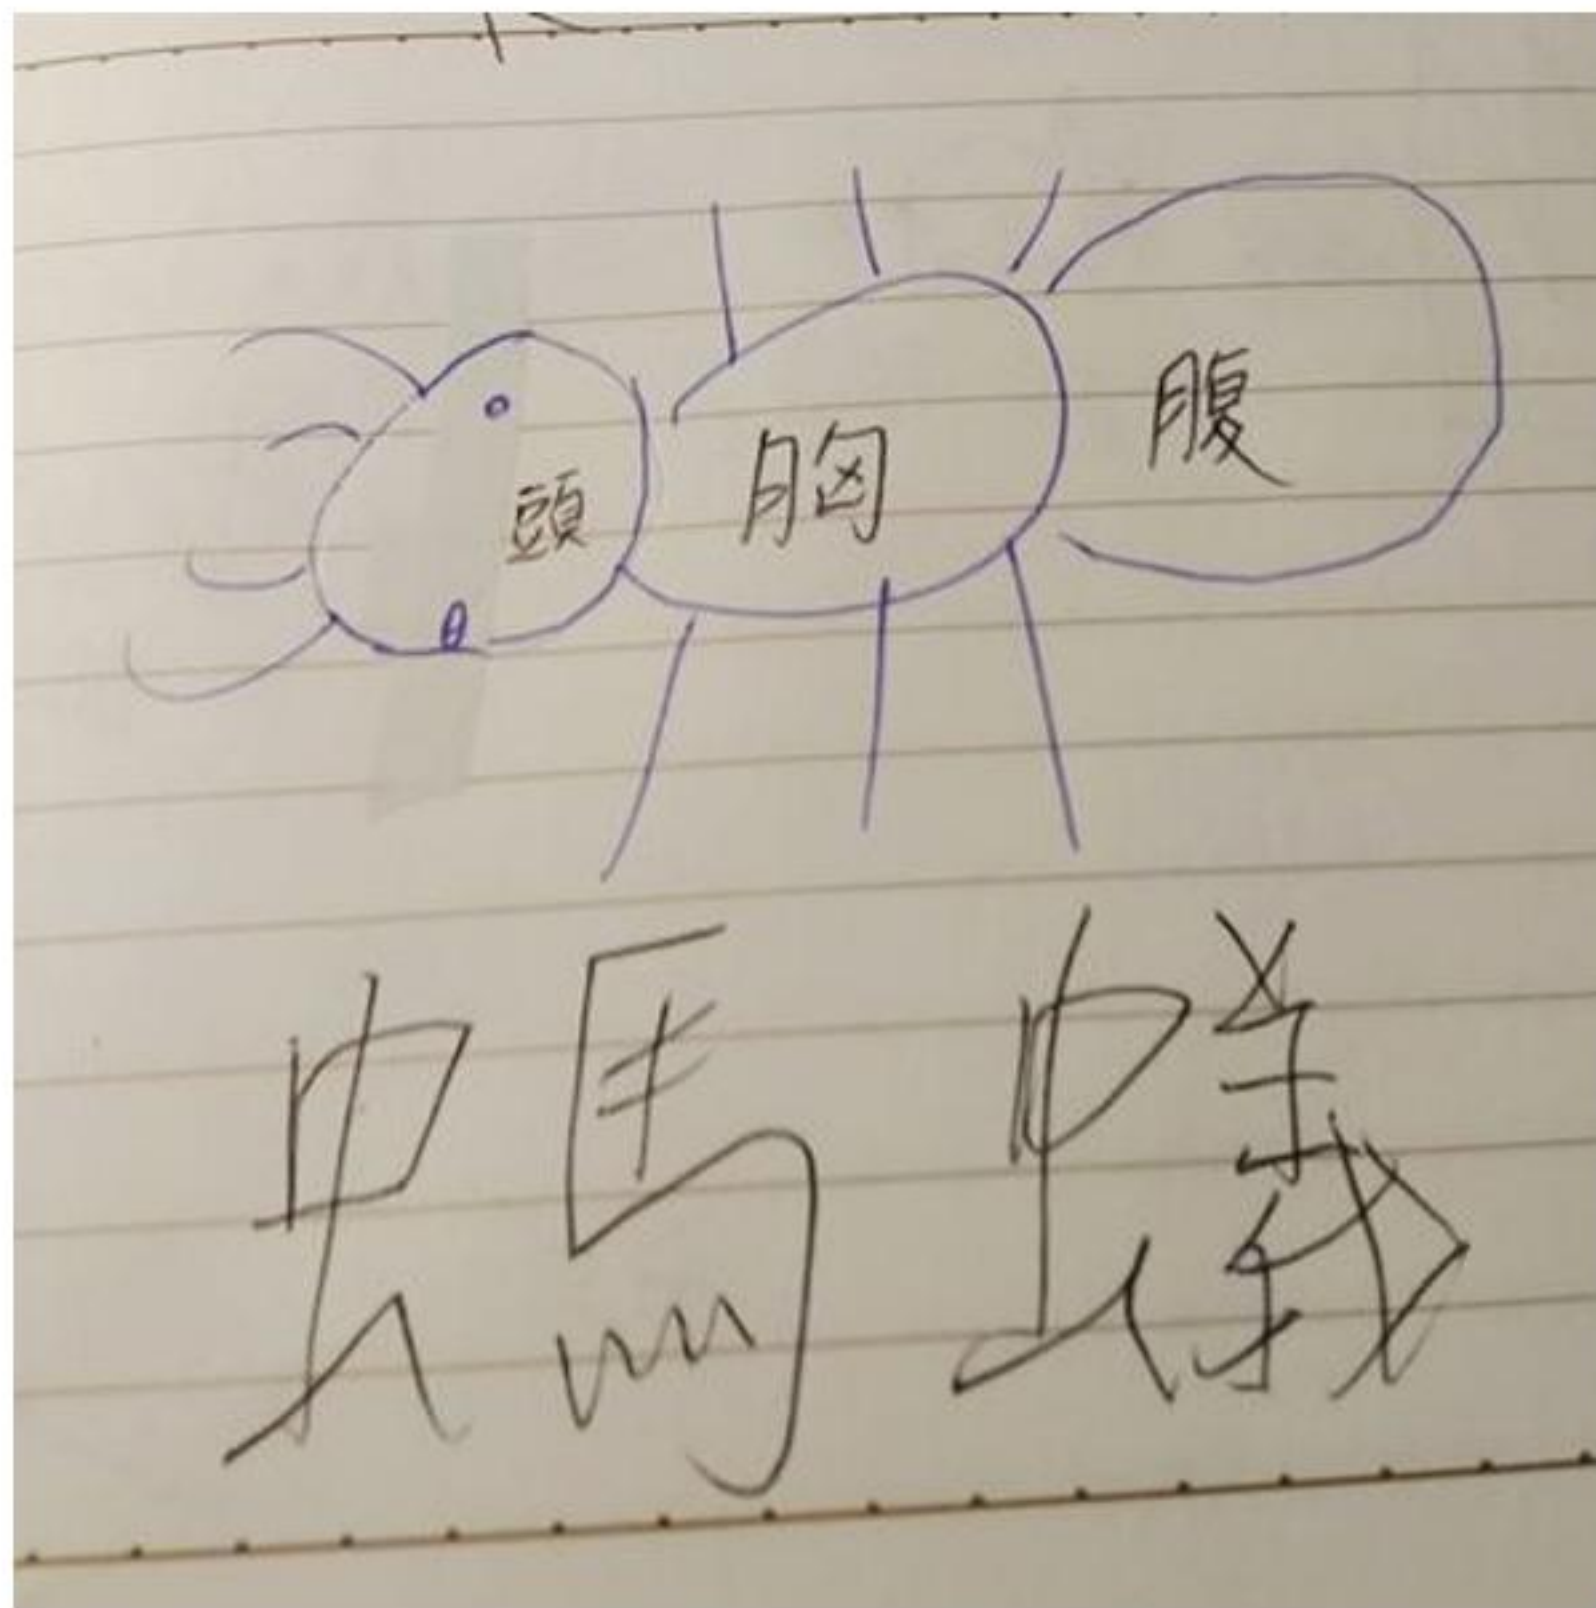 頭 胸 腹
螞蟻